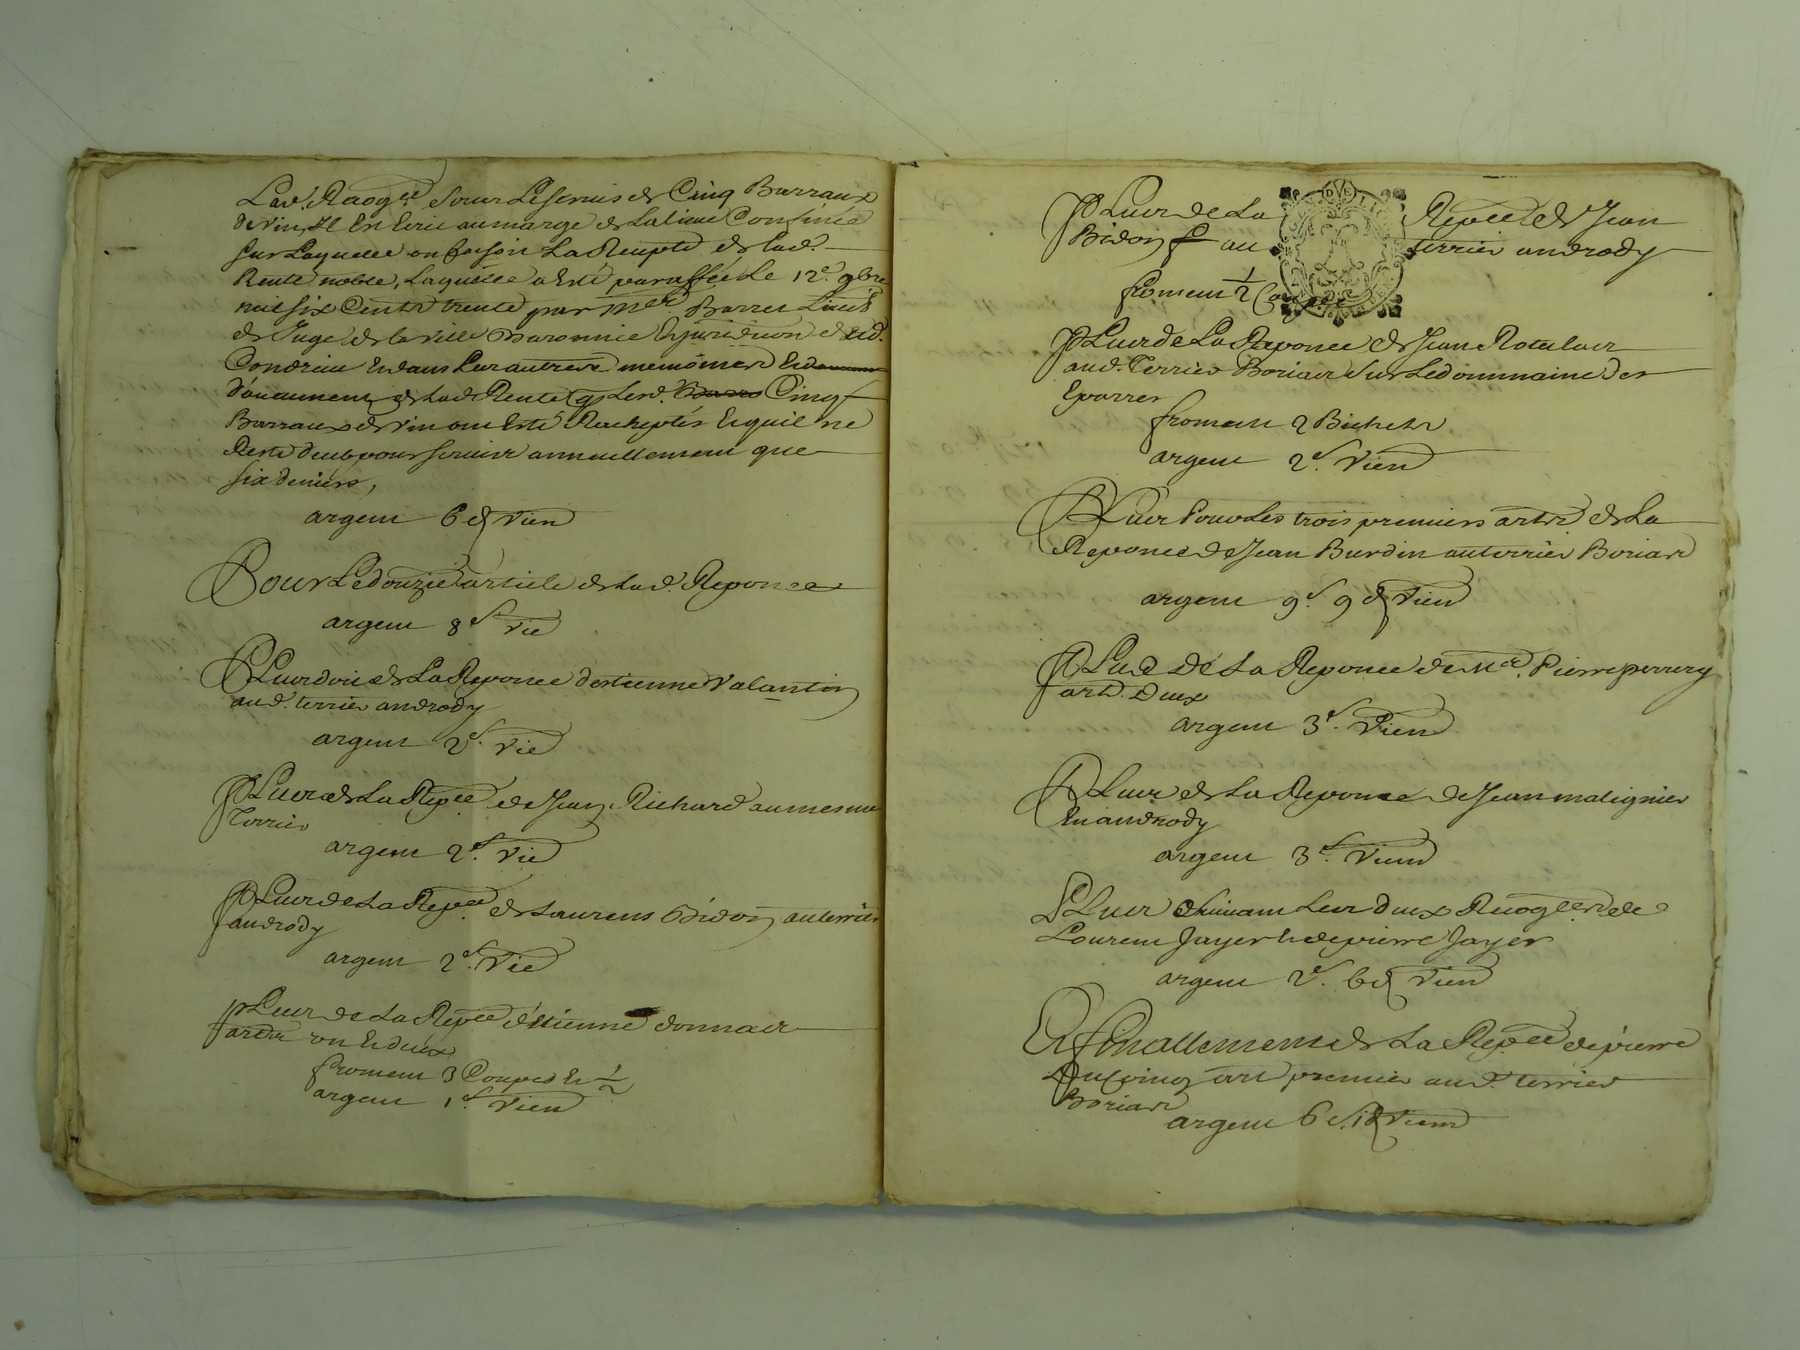 Lad. Recogce Sous Le servis de Cinq Barraux
de vin, Il En Ecrit au marge de La liene Confinée
sur Laquelle on faisoit La Recepte de lad.
Rente noble, Laquelle a Esté paraffée Le 12e 9bre
mil six Cents trente par Mer. Barret Lieut
de Juge de la ville Baronnie Et juridicion dud.
Condrieu Et dans Leur autre
d'aucunement de Lad Rente que Lesd. Cinq
Barraux de vin ont Esté Racheptés Et qu'il ne
Reste deub pour servise annuellement que
six deniers,
argent 6 d Vien
Pour Le douzie article de Lad. Reponce
argent 8 s. Vie
Plus doit de La Reponce d'estienne Valantin
aud. terrier andrody
argent 2 s. Vie
Plus de La Repce de Jean Richard au mesme
Terrier
argent 2 s. Vie
Plus de La Repce de Laurens Bidon au terrier
andrody
argent 2 s. Vie
Plus de La Repce d'Etienne donnair
artre un Et deux
froment 3 Coupes Et 1/2
argent 1 s. Vien
DE
Plus de La Repce de Jean
Bidon au terrier andrody
froment 1/2 Coupe
Plus de La Reponce de Jean
aud. Terrier Boriair Sur Le dommaine des
Eparres
froment 2 Bichets
argent 2 s. Vien
Plus Pour Les trois premiers artre de La
Reponce de Jean Burdin au terrier Boriar
argent 9 s. 9 d Vien
Plus de La Reponce de Mre. Pierre perrery
art. Deux
argent 3 s. Vien
Plus de La Reponce de Jean malignier
En andrody
argent 3 s. Vienn
Plus Suivant Les deux Recogces de
Lourent Jayer Et de pierre Jayer
argent 2 s. 6 d Vien
Et finallement de La Repce de pierre
art premier aud. terrier
Boriar
argent 6 s. 1 d Vienn